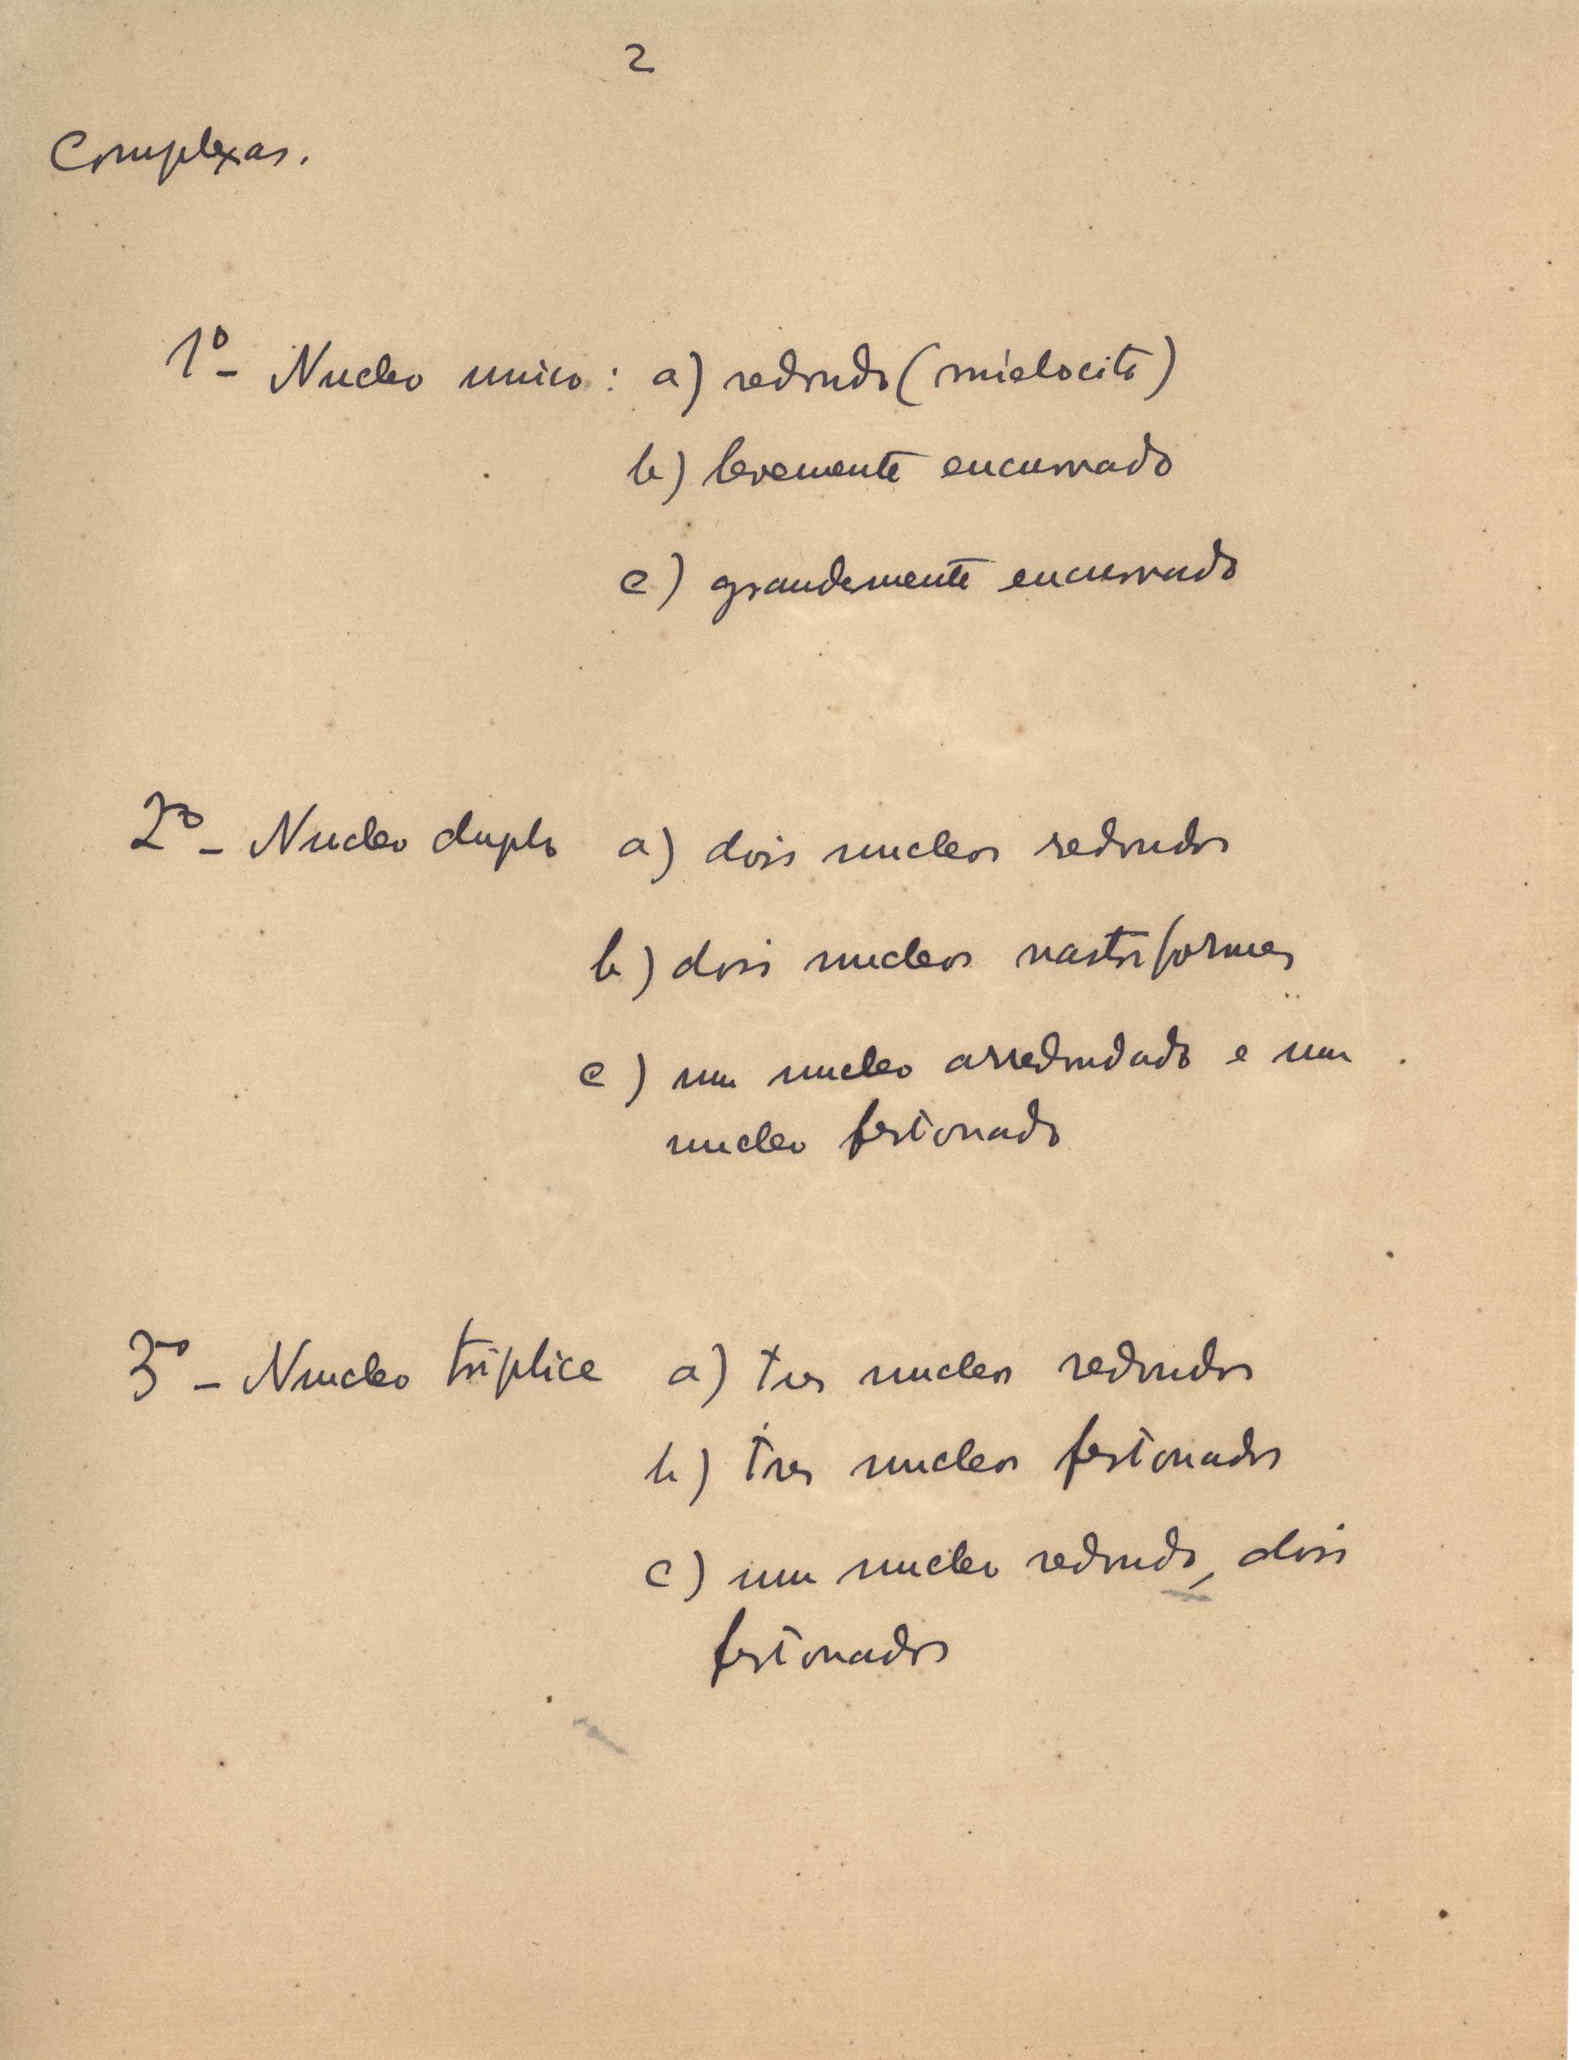 2
Complexas.
1º - Nucleo unico : a) redondo (mielocito)
b) levemente encurvado
c) grandemente encurvado
2º - Nucleo duplo a) dois nucleos redondos
b) dois nucleos nastriformes
c) um nucleo arredondado e um
nucleo festonado
3º - Nucleo triplice a) tres nucleos redondos
b) tres nucleos festonados
c) um nucleo redondo, dois
festonados